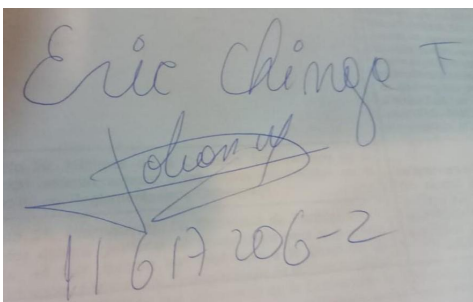 Eric Chinga F
Johan
11617206-2